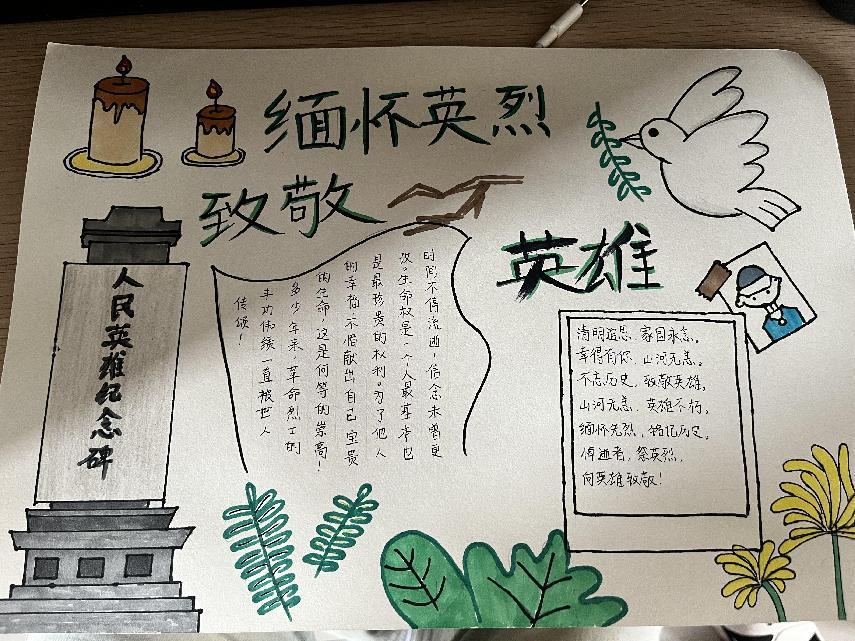 缅怀英烈
致敬
英雄
人民英雄纪念碑
时间不停流逝,信念未曾更
改。生命权是一个人最基本也
是最珍贵的权利。为了他人
的幸福不惜献出自己宝贵
的生命,这是何等的崇高!
多少年来,革命烈士的
丰功伟绩一直被世人
传颂!
清明追思,家国永念。
幸得有你,山河无恙。
不忘历史,致敬英雄,
山河无恙,英雄不朽。
缅怀先烈,铭记历史。
悼逝者,祭英烈,
向英雄致敬!